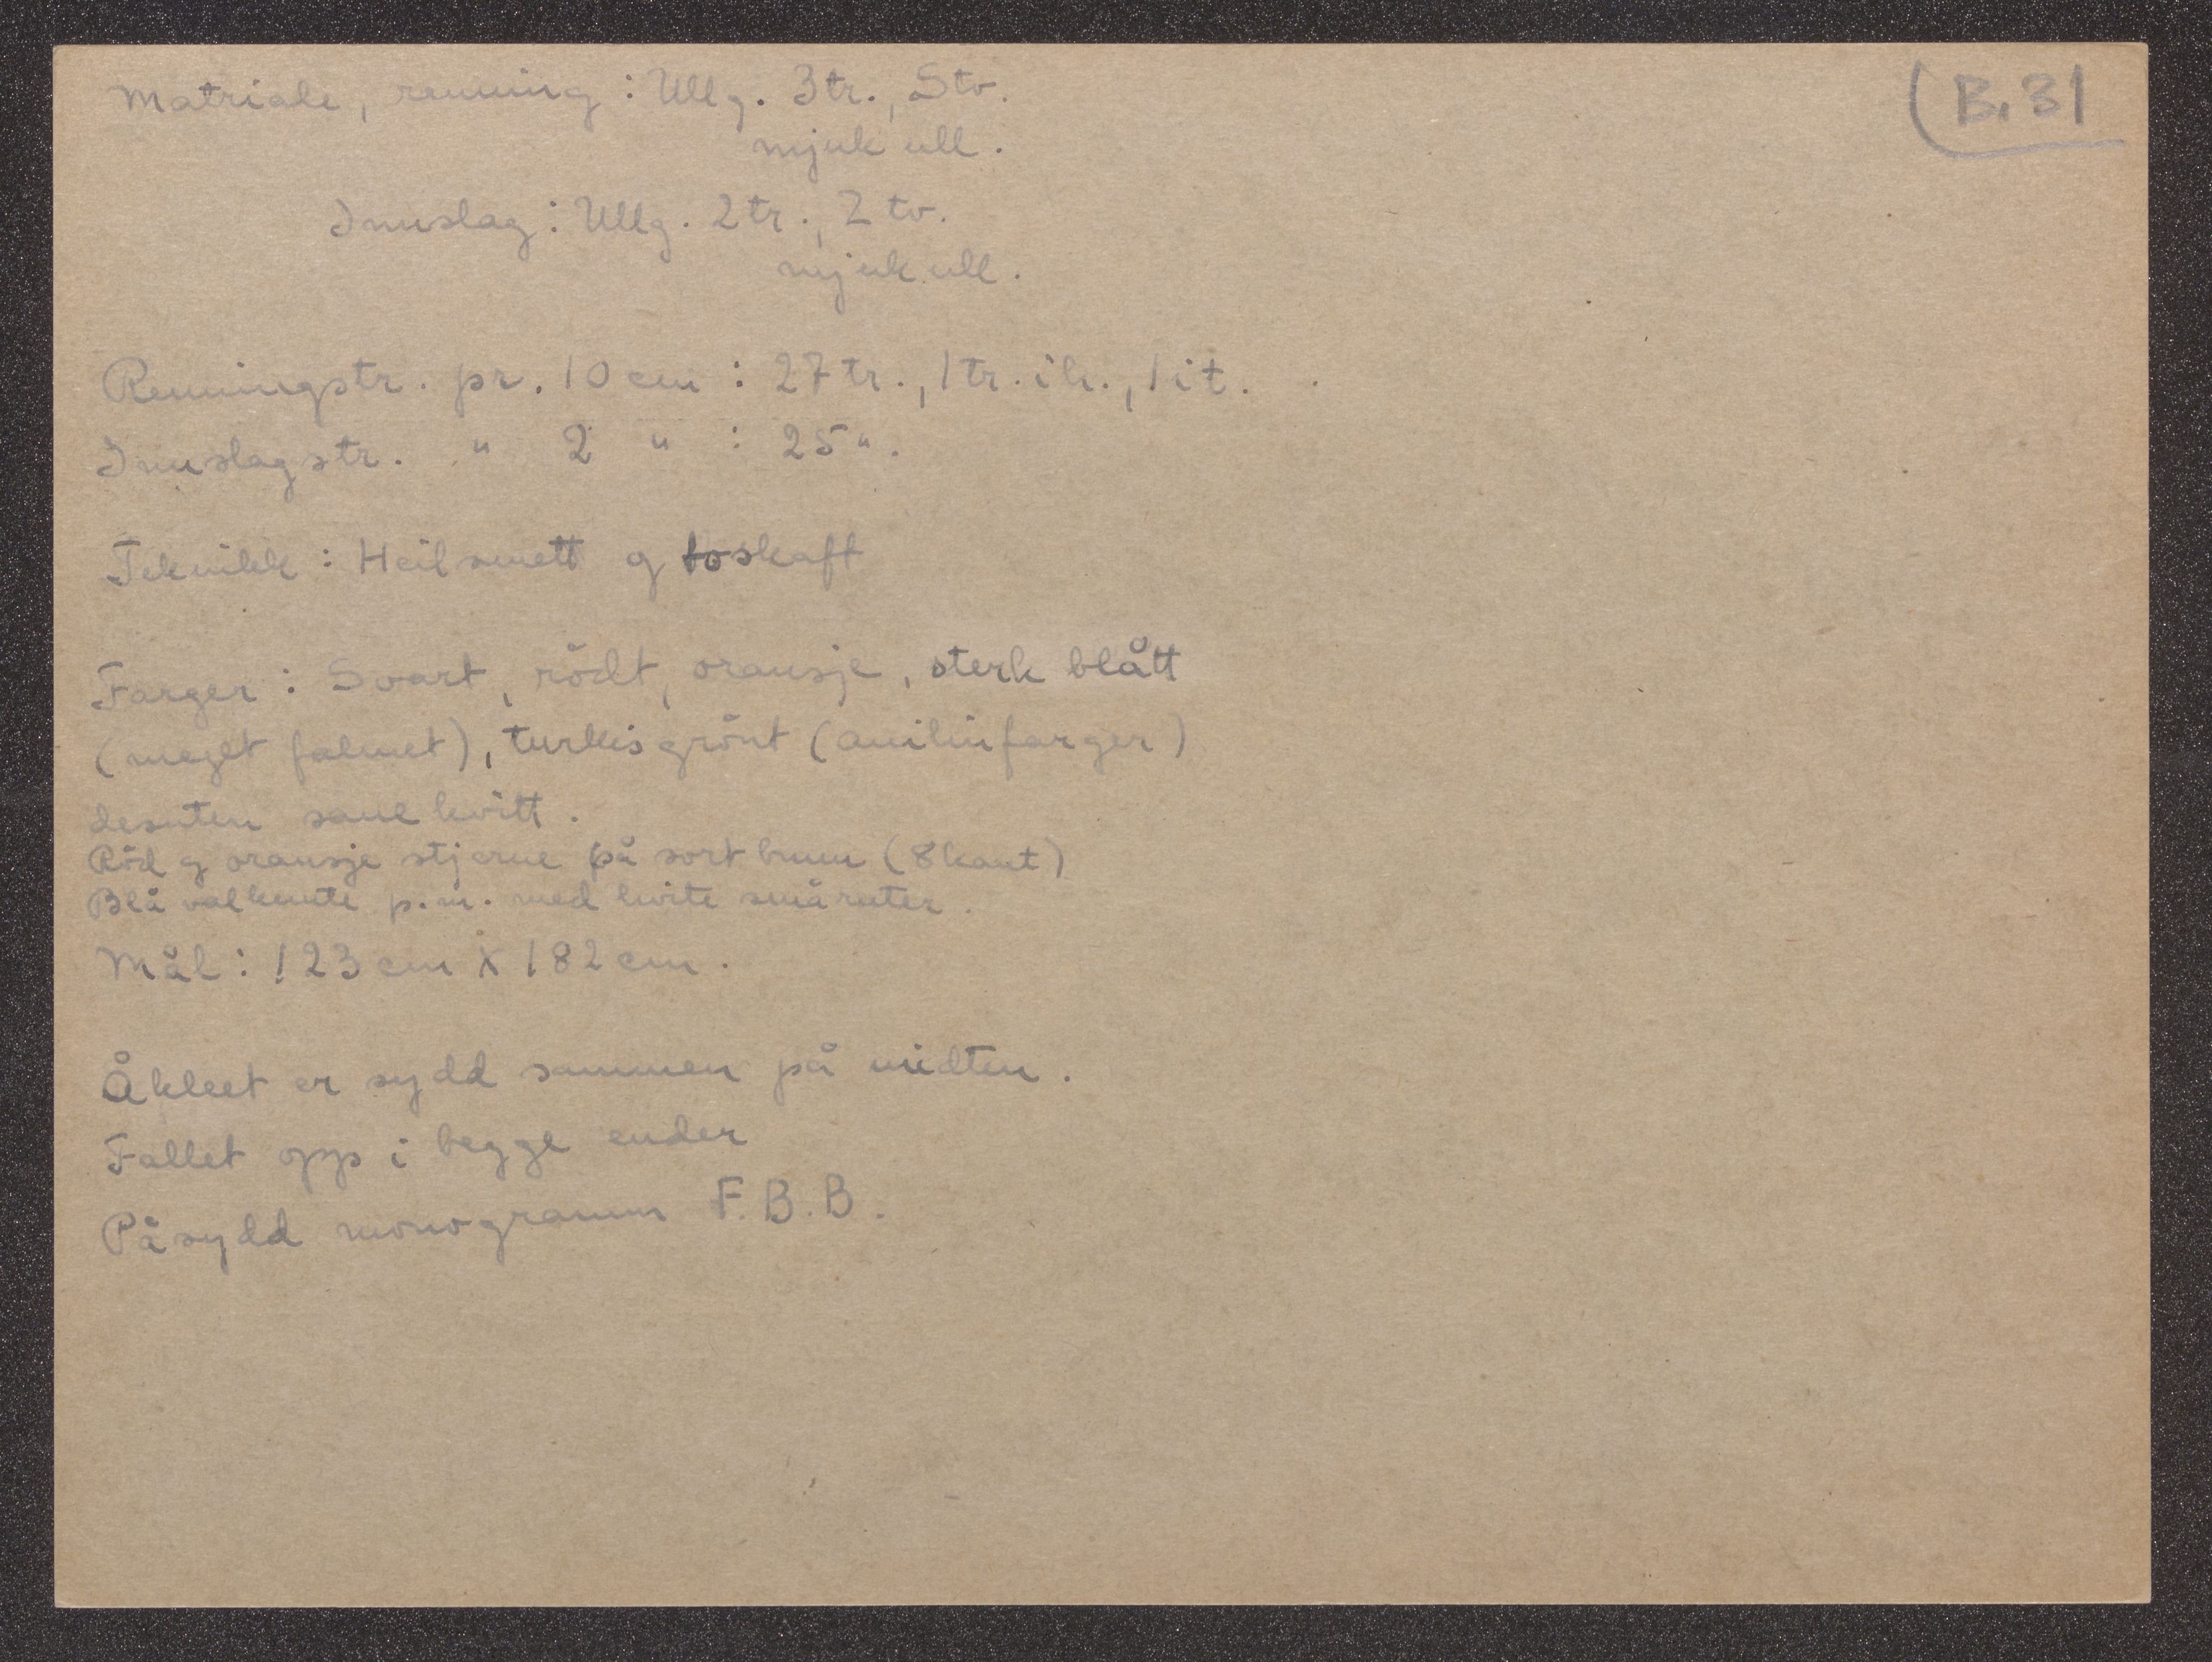 B. 31
Matriale, renning : Ullg. 3tr., Stv.
mjuk ull.
Innslag : Ullg. 2tr., Z tv.
mjuk ull.
Renningstr. pr. 10 cm : 27 tr., 1 tr. i h., 1 i t.
Innslagstr. " 2 " : 25 ".
Teknikk : Heilsmett og toskaft
Farger : Svart, rödt, oransje, sterk blått
(meget falmet), turkis grönt (anilinfarger)
desuten sauekvitt.
Röd og oransje stjerne på sort bunn (8kant)
Blå valknute p.m. med hvite småruter.
Mål : 123 cm X 182 cm.
Åkleet er sydd sammen på midten.
Fallet opp i begge ender
Påsydd monogramm F.B.B.